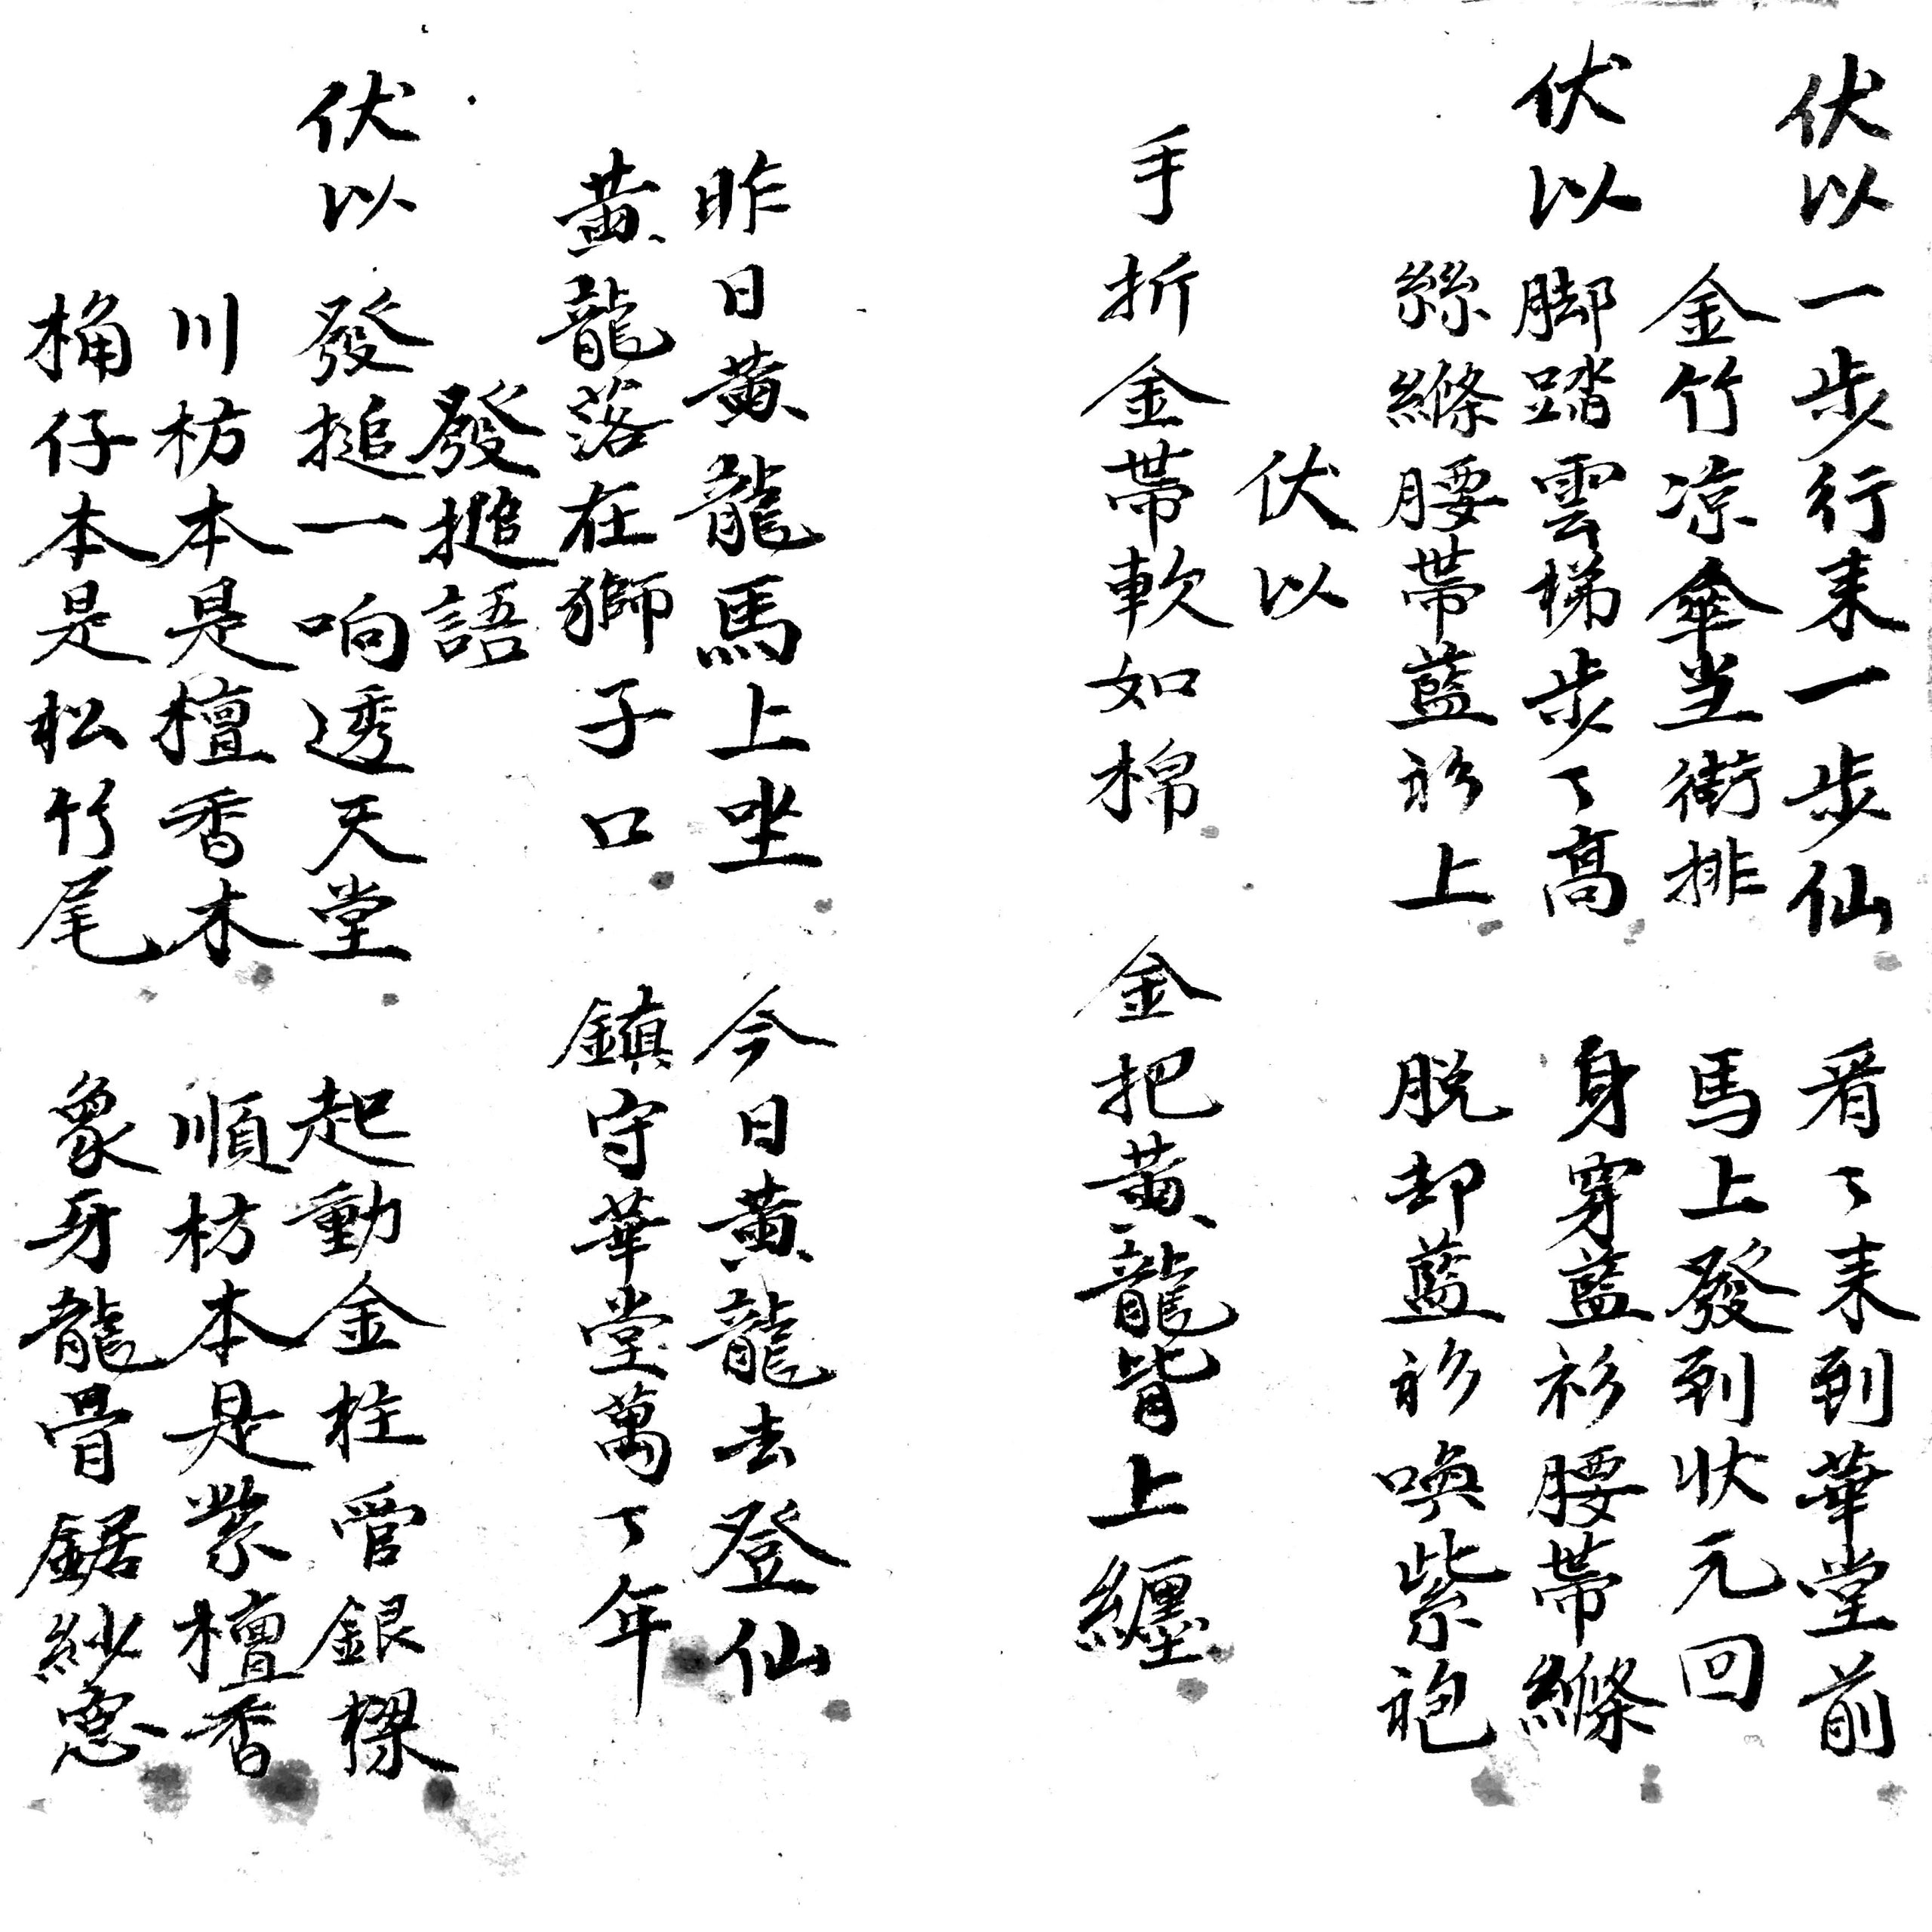 伏以一步行来一步仙 看々来到華堂前
金竹凉傘当街排 馬上發到状元回
伏以 脚踏雲梯步々高 身穿藍衫腰帶縧
絲縧腰帶藍衫上 脱却藍衫喚紫袍
伏以
手折金帶軟如棉 金把黄龍背上纏
昨日黄龍馬上坐 今日黄龍去登仙
黄龍落在獅子口 鎮守華堂萬々年
發搥語
伏以 發搥一响透天堂 起動金柱管銀樑
川枋本是檀香木 順枋本是紫檀香
桷仔本是松竹尾 象牙龍骨鋸紗窓